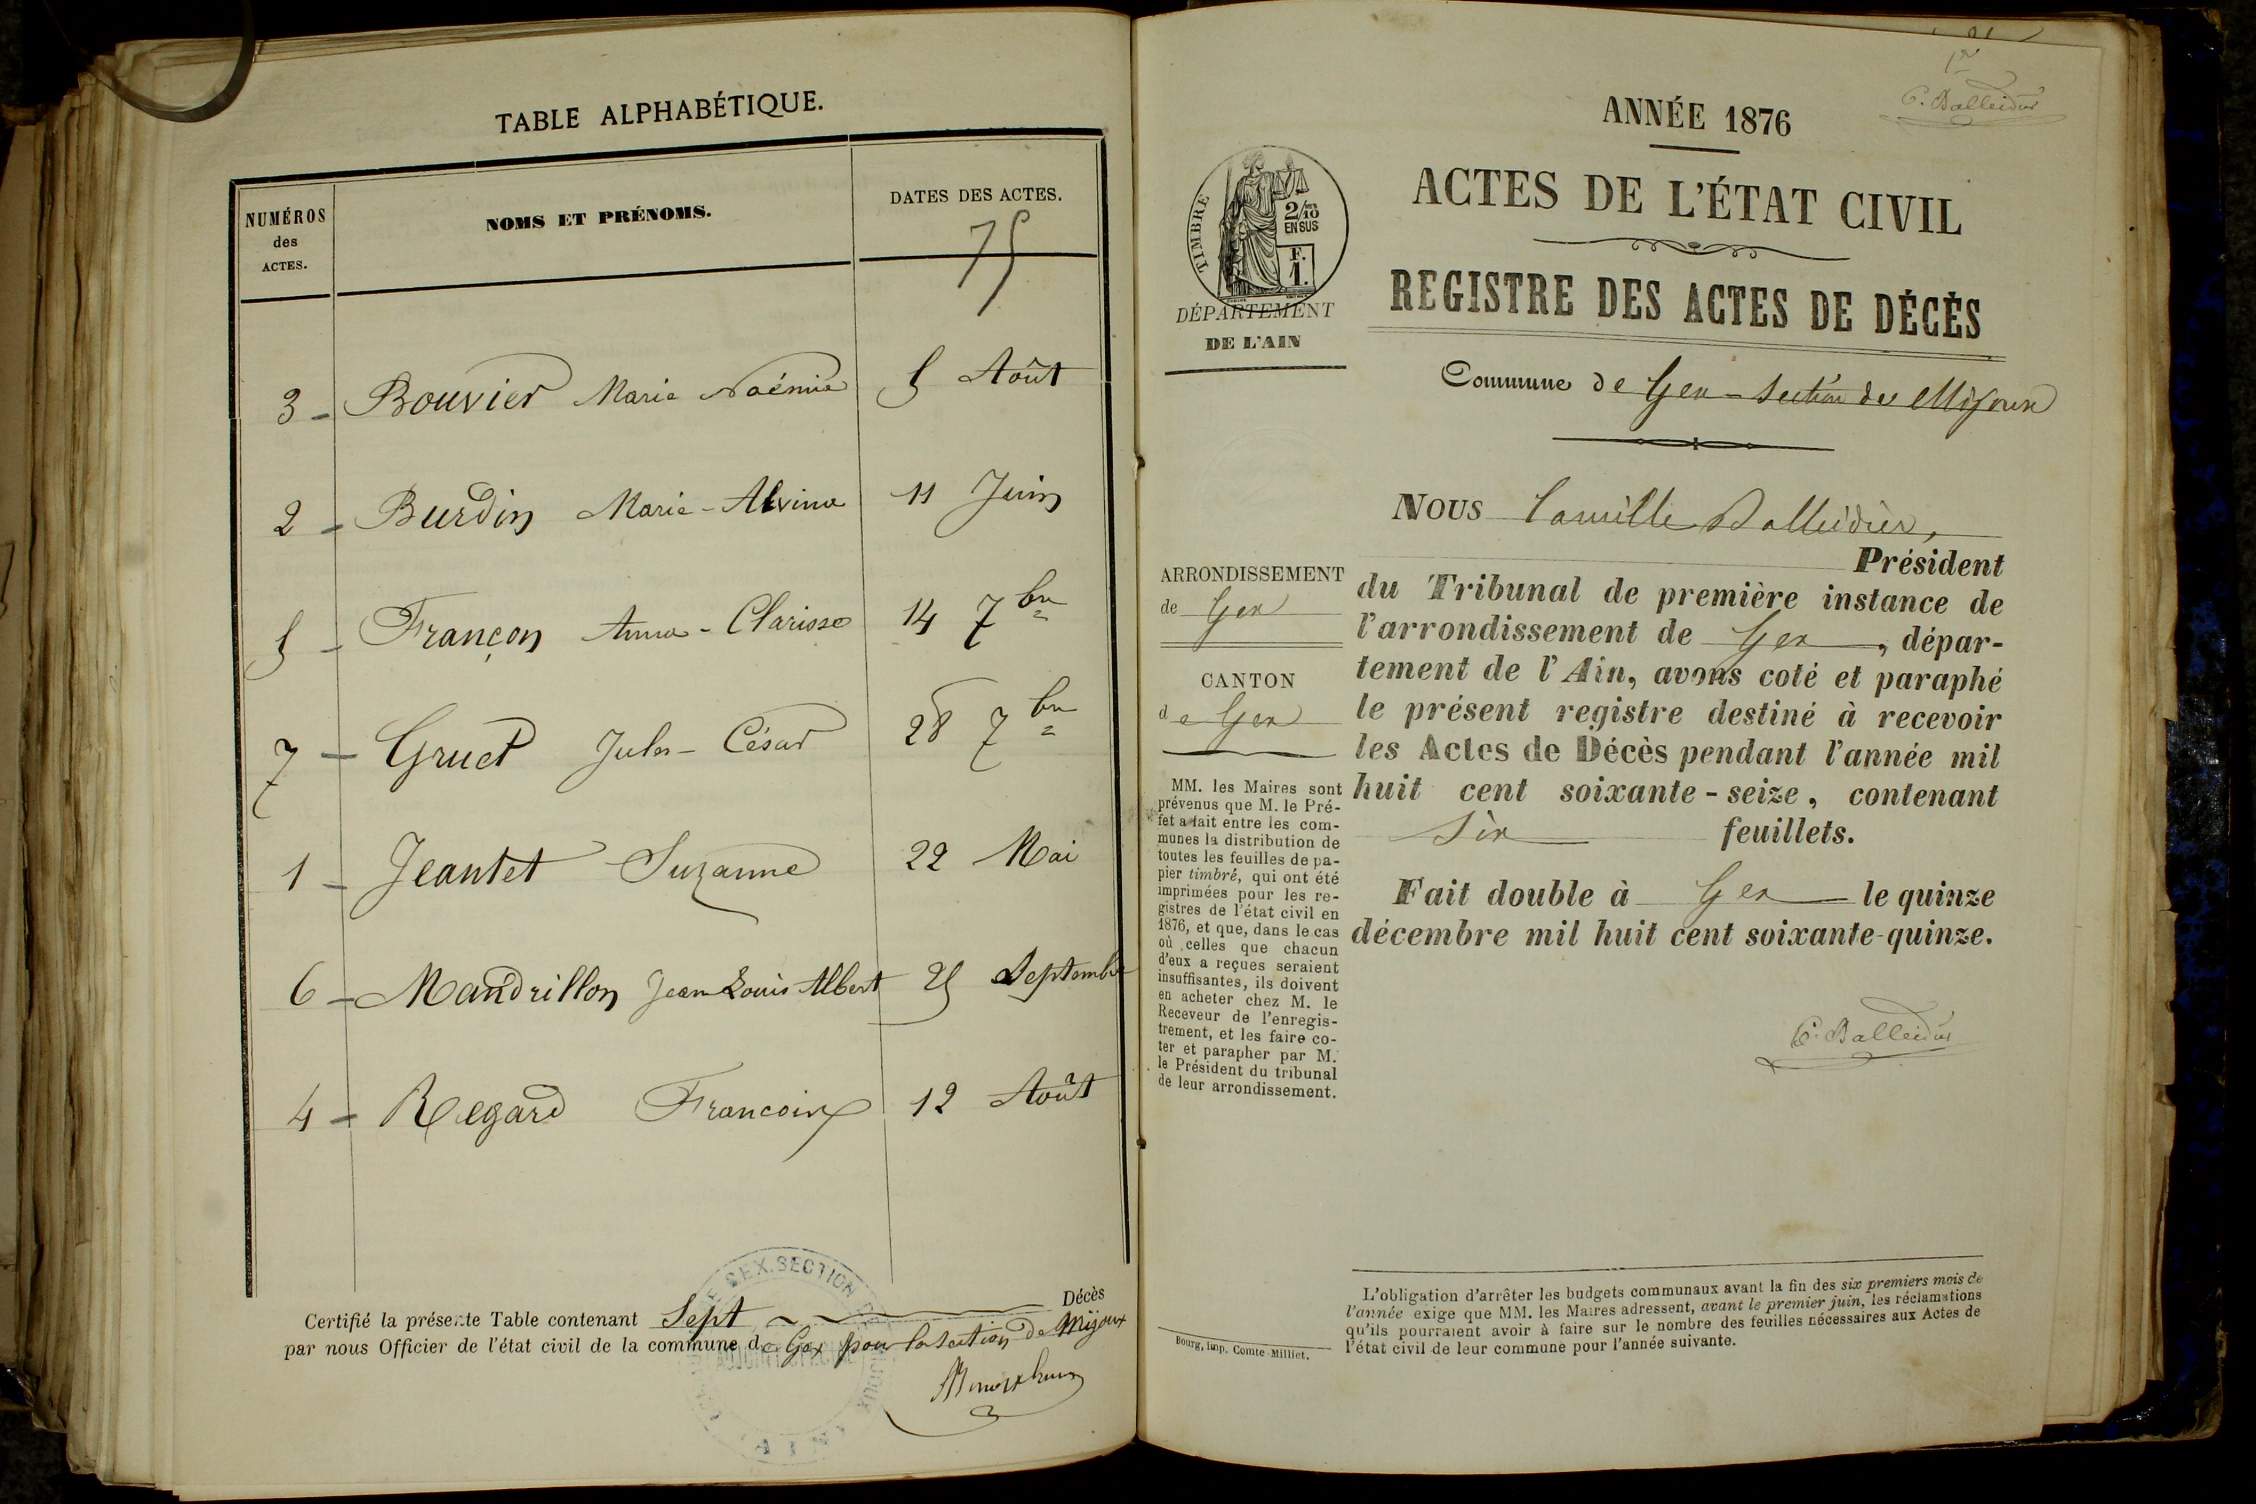 TABLE ALPHABÉTIQUE.
NUMÉROS
des
ACTES.
NOMS ET PRÉNOMS.
DATES DES ACTES.
75
3 - Bouvier Marie Noémie 5 Août
2 - Burdin Marie-Alvina 11 Juin
5 - Françon Anna-Clarisse 14 7bre
7 - Gruet Jules-César 28 7bre
1 - Jeantet Suzanne 22 Mai
6 - Mandrillon Jean Louis Albert 25 Septembre
4 - Regard Francois 12 Août
Certifié la présente Table contenant Sept Décès
par nous Officier de l'état civil de la commune de Gex pour la section de Mijoux
GEX. SECTION
1er
C. Balleidier
ANNÉE 1876
ACTES DE L'ÉTAT CIVIL
REGISTRE DES ACTES DE DÉCÈS
TIMBRE
2/10
EN SUS
F.
1.
DÉPARTEMENT
DE L'AIN
Commune de Gex - Section de Mijoux
NOUS Camille Balleidier,
Président
du Tribunal de première instance de
l'arrondissement de Gex, dépar-
tement de l'Ain, avons coté et paraphé
le présent registre destiné à recevoir
les Actes de Décès pendant l'année mil
huit cent soixante-seize, contenant
Six feuillets.
Fait double à Gex le quinze
décembre mil huit cent soixante-quinze.
C. Balleidier
ARRONDISSEMENT
de Gex
CANTON
de Gex
MM. les Maires sont
prévenus que M. le Pré-
fet a fait entre les com-
munes la distribution de
toutes les feuilles de pa-
pier timbré, qui ont été
imprimées pour les re-
gistres de l'état civil en
1876, et que, dans le cas
où celles que chacun
d'eux a reçues seraient
insuffisantes, ils doivent
en acheter chez M. le
Receveur de l'enregis-
trement, et les faire co-
ter et parapher par M.
le Président du tribunal
de leur arrondissement.
Bourg, imp. Comte-Milliet.
L'obligation d'arrêter les budgets communaux avant la fin des six premiers mois de
l'année exige que MM. les Maires adressent, avant le premier juin, les réclamations
qu'ils pourraient avoir à faire sur le nombre des feuilles nécessaires aux Actes de
l'état civil de leur commune pour l'année suivante.